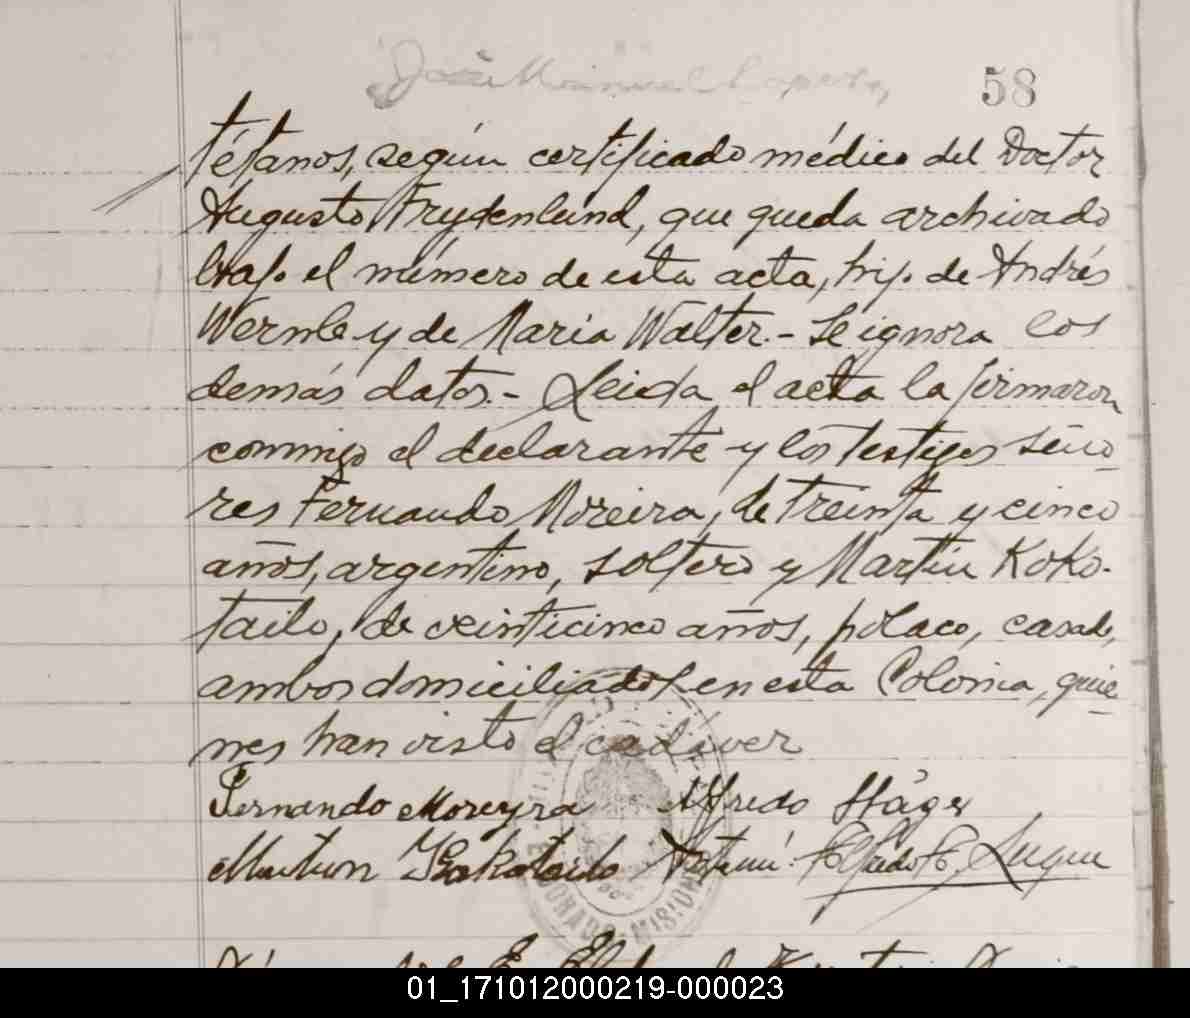 José Manuel
58
tétanos, según certificado médico del Doctor
Augusto Frydenlund, que queda archivado
bajo el número de esta acta, hijo de Andrés
Wernle y de María Walter.- Se ignora los
demás datos.- Leida el acta la firmaron
conmigo el declarante y los testigos seño-
res Fernando Moreira, de treinta y cinco
años, argentino, soltero y Martín Koko-
tailo, de veinticinco años, polaco, casado,
ambos domiciliados en esta Colonia, quie-
nes han visto el cadáver
Fernando Moreyra Alfredo Stäger
Alfredo
ELDORADO-MISIONES
01_171012000219-000023